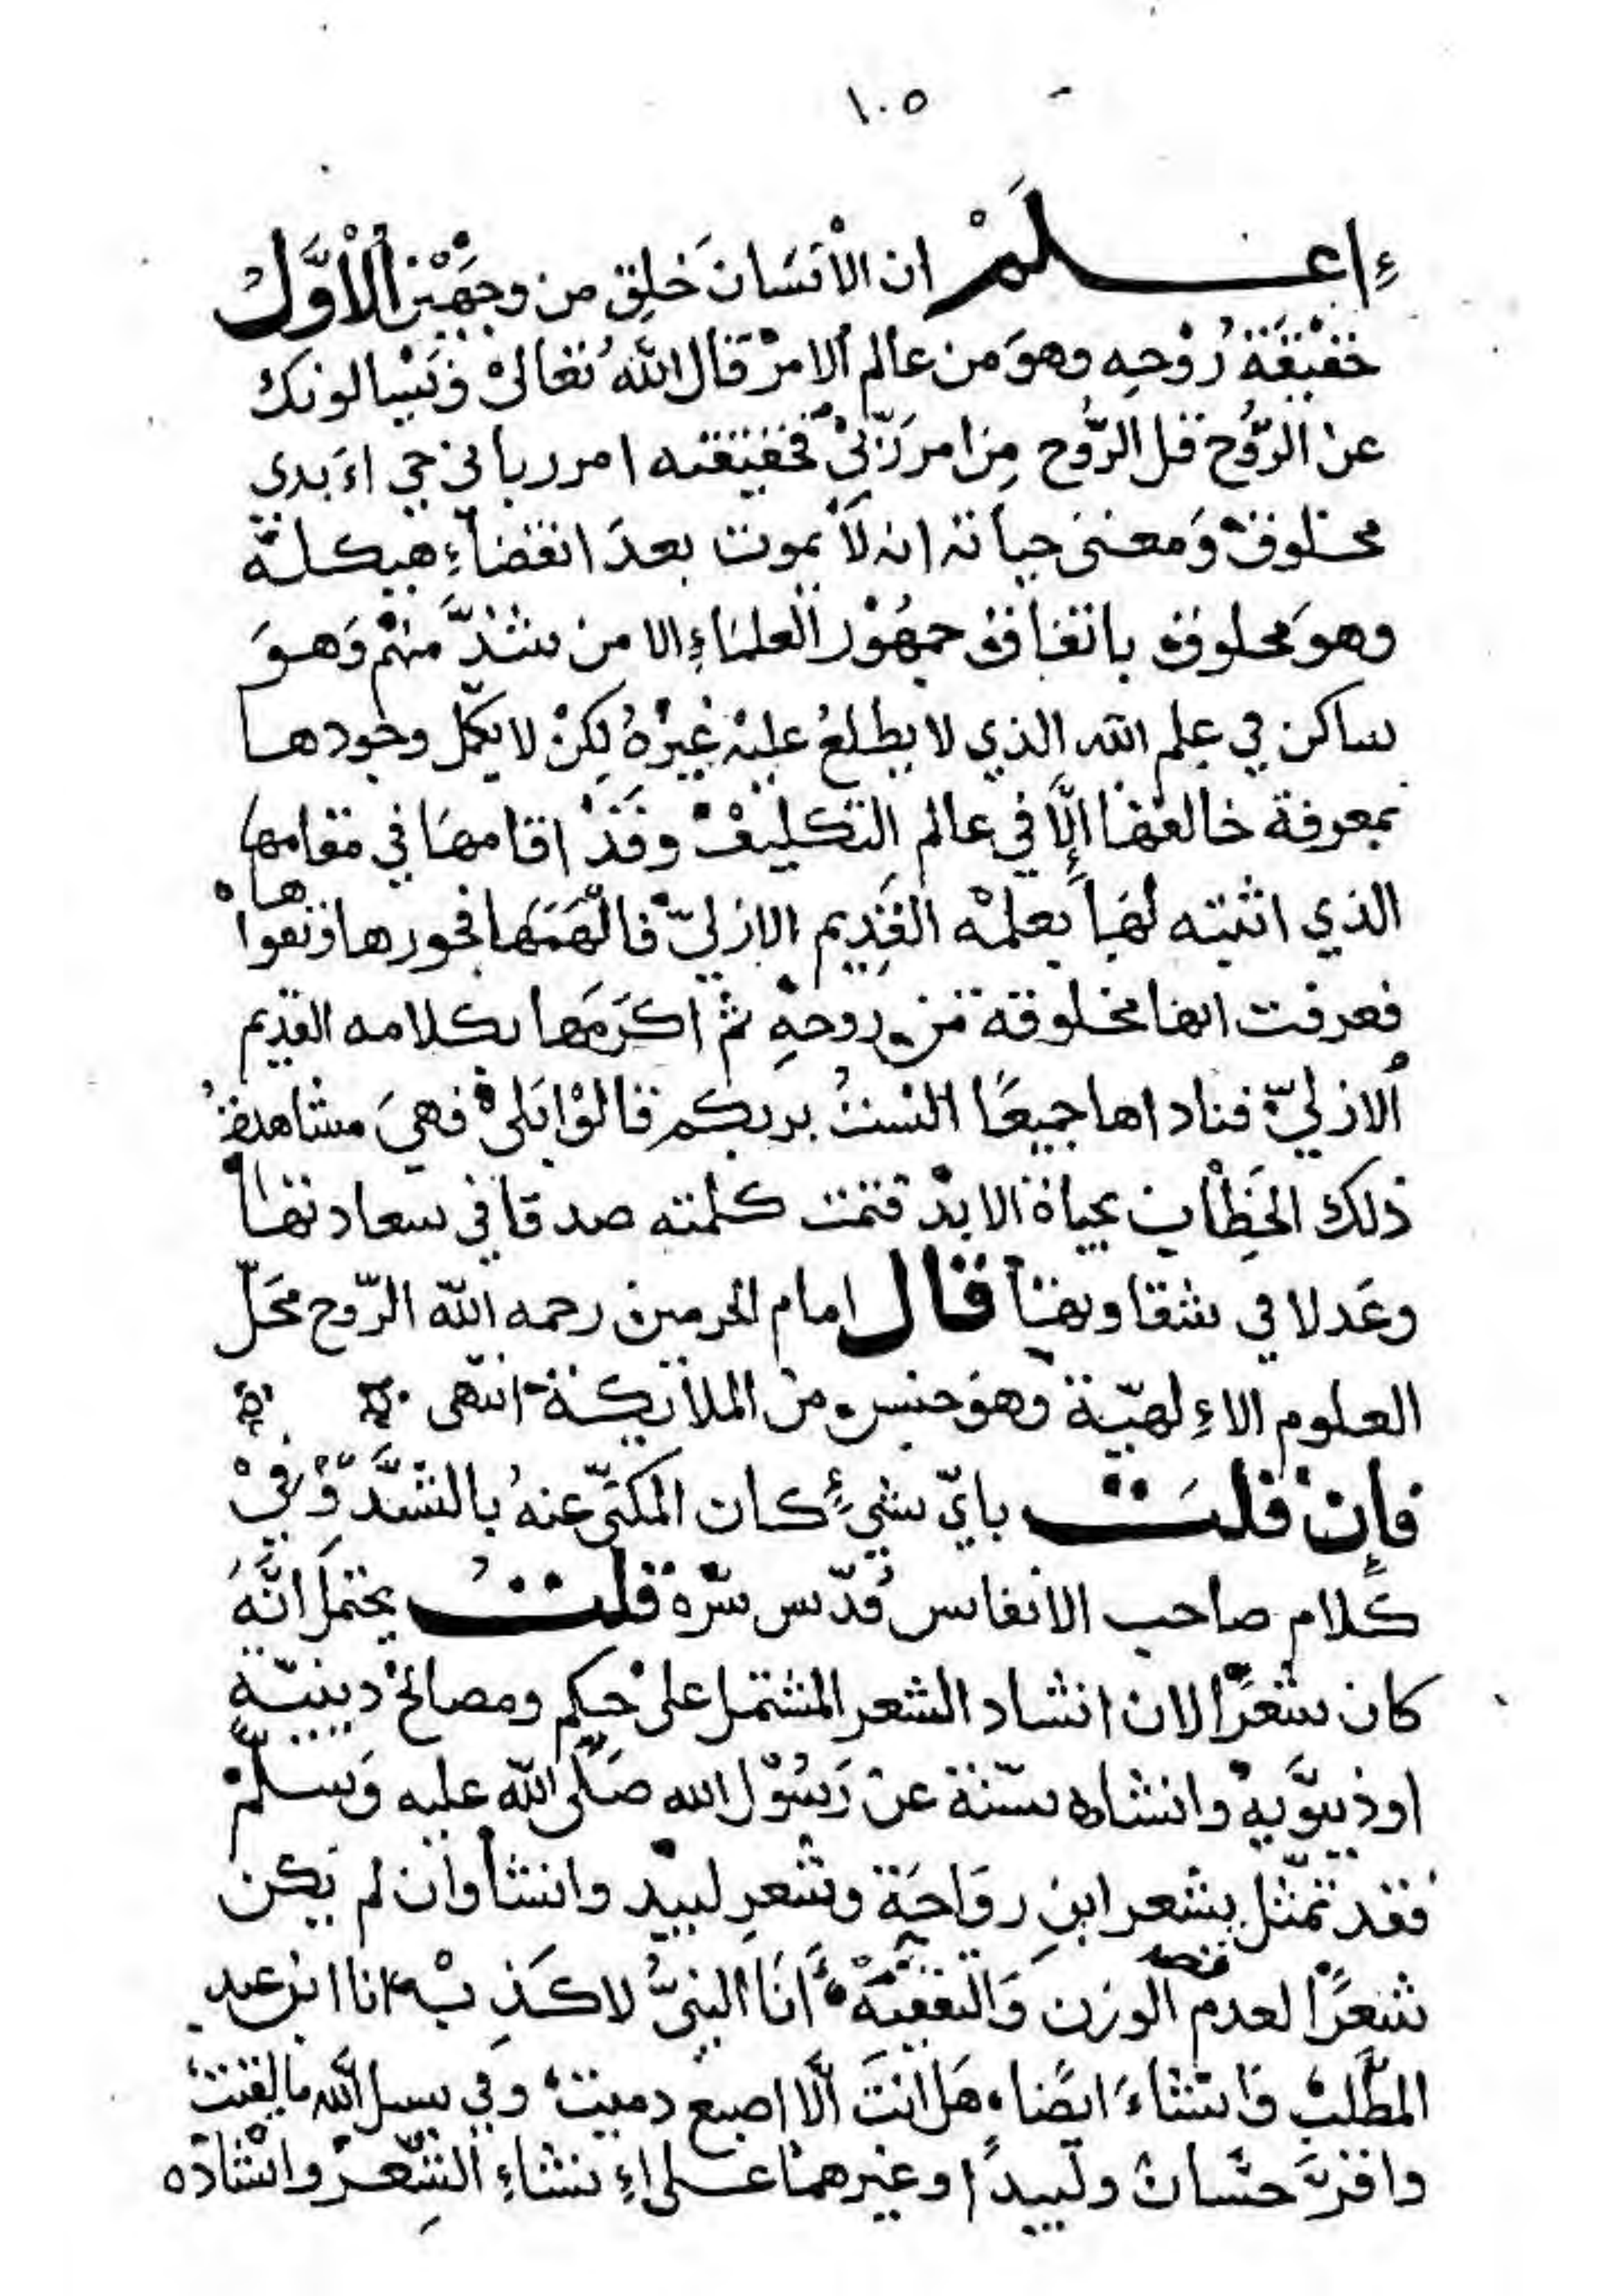 ١٠٥
إعلَمْ ان الْانسَانَ خلِق من وجهَيْن الْأوَّلُ
حَقيْقَة رُوْحِهِ وهوَ من عالم الامرْ قال اللهُ تعَالىْ وَيَسْالونك
عنْ الرّوُح قل الرّوُح مِن امر رَبّيْ فحقيقته امر رباني حي اءَبدي
مخلوقْ وَمعنىَ حياته انه لاَ يموت بعدَ انقضاءِ هيكله
وهوَ مخلوق باتفاق جمهُوْر العلمَاءِ الا من شذَّ منهمْ وَهوَ
ساكن في علم الله الذي لا يطلعُ عليْه غيْرهُ لكِنْ لا يكمل وجودها
بمعرفة خالقها إلَّا في عالم التكليفْ وقَدْ اقامهَا في مقامها
الذي اثبته لهَا بعلمْه القَدِيم الازليّ فالْهَمَهَا فجورها وتقواها
فعرفت انها مخلوقة منْ روحهِ ثمْ اكرَمَها بكلامه القديم
الازليّ فناداها جميعًا الستُ بربكم قالوْا بَلىْ فهيَ مشاهدة
ذلك الخَطْاب بحياة الابدْ فتمت كلمته صدقا في سعادتها
وعَدلا في شقاوتها قال امام الحرمين رحمه الله الرّوح محَلّ
العلوم الاءِلهيّة وهوَ جنس منْ الملاَئكة انتهى
فإن قلتَ بايّ شيءٍ كان المكنّى عنهُ بالشدّ وَفيْ
كَلام صاحب الانفاس قُدّس سرّه قلتُ يحتمَل انَّهُ
كان شعْرًا لان انشاد الشعر المشتمل علىْ حِكم ومصالحْ دينيّةٍ
اودنيوَّيهٍ وانشاده سنّة عنْ رَسُوْل الله صَلّى الله عليه وَسلّمْ
فقد تمثّل بشعر ابنِ روَاحَة وشعرِ لبيد وانشأ وان لم يكن
شعرًا لعدم قصد الوزن وَالتقفيَة أنَا النبيُّ لا كَذِبْ انا ابن عبد
المطّلبْ وَانشاءَ ايضًا هَل انتَ الَّا اصبع دميتْ وفي سبيل الله ما لقيت
واقرَّ حسَّانْ ولَبيدًا وغيرهمْا على اءِنشاءِ الشِعرْ وانشاده